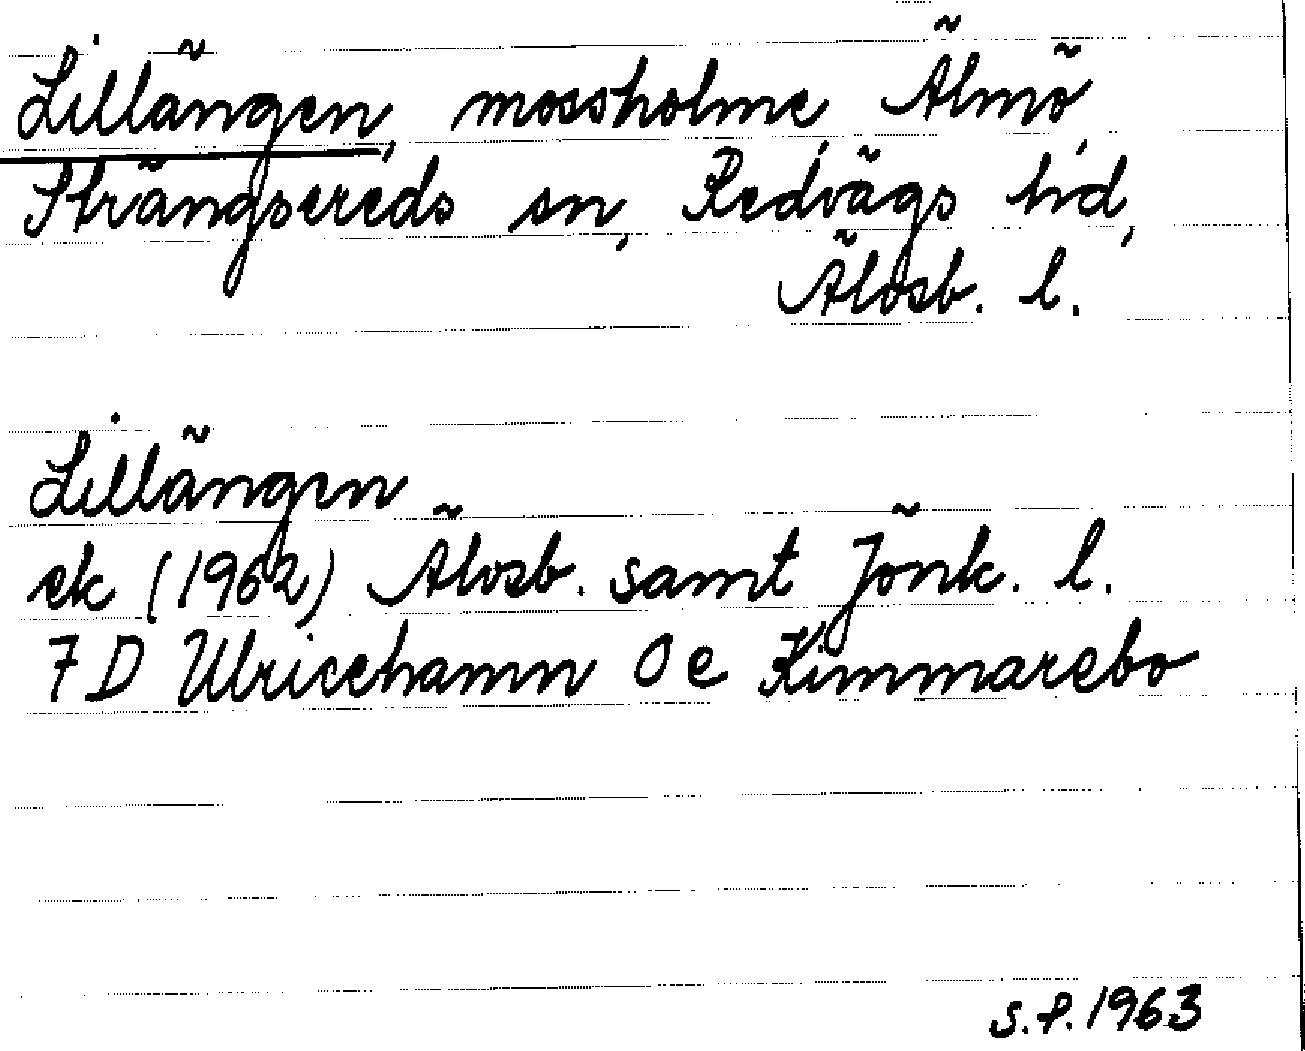 Lillängen, mossholme, Älmö,
Strängsereds sn, Redvägs hd,
Älvsb. l.
Lillängen
ek (1962) Älvsb. samt Jönk. l.
7 D Ulricehamn 0 e Kimmarebo
S.P. 1963